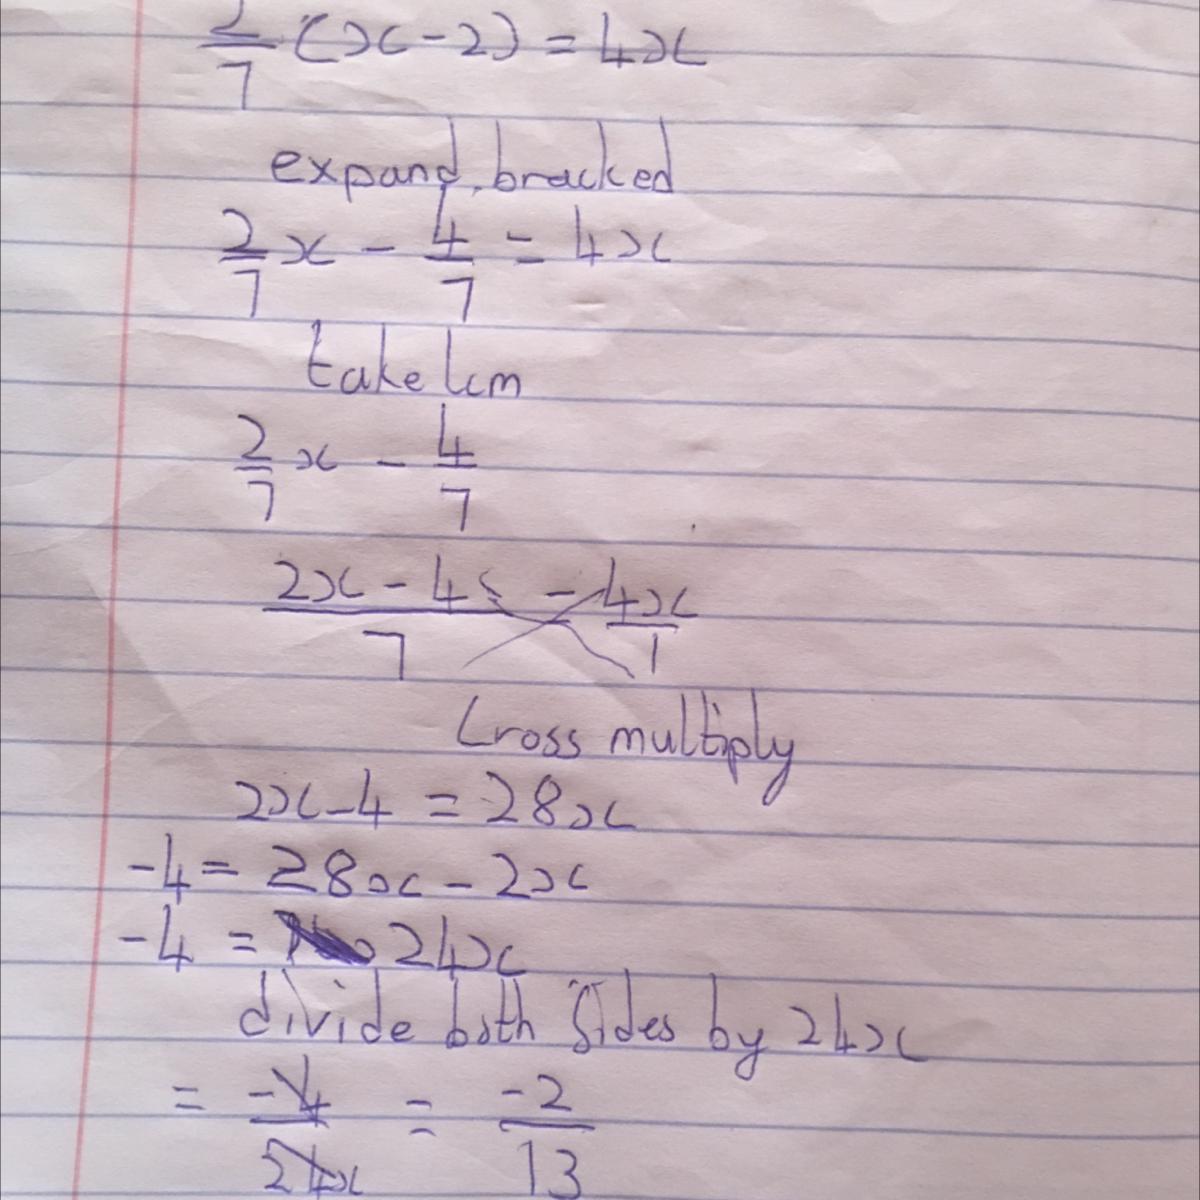 2/7 (x-2) = 4x
expand bracked
2/7 x - 4/7 = 4x
take lcm
2/7 x - 4/7
2x - 4 / 7 = 4x / 1
Cross multiply
2x-4 = 28x
-4 = 28x - 2x
-4 = 24x
divide both sides by 24x
= -4/24x = -2/13